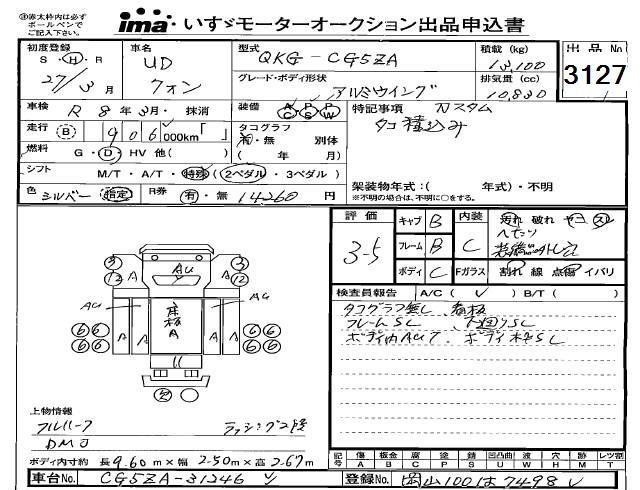 ㊟赤太枠内は必ず
ボールペンで
ご記入下さい。
ima いすゞモーターオークション出品申込書
初度登録 S・H・R 27/3月
車名 UD クオン
型式 QKG-CG5ZA
グレード・ボディ形状 アルミウイング
積載 (kg) 13,100
排気量 (cc) 10,830
出品No 3127
車検 R 8年3月・抹消
装備 A/C P/S P/W
特記事項 カスタム
タコ積込み
走行 (B) 906,000km「 」
タコグラフ 有・無 別体 ( 年 月)
燃料 G・D・HV 他( )
シフト M/T・A/T・特殊 (2ペダル・3ペダル)
架装物年式:( 年式)・不明
※不明の場合は、不明に○をする。
色 シルバー 指定 R券 有・無 14260 円
評価 3.5
キャブ B 内装 C 汚れ 破れ ヤニ スレ
フレーム B
ボディ C Fガラス 割れ 線 点傷 イバリ
検査員報告 A/C ( ✓ ) B/T ( )
タコグラフ無し
フレームSL 下回りSL
ボディ内AUア ボディ
3 3
12 A AU A 12
AU AG
6 6 A A 床板A A A 6 6
6 6 6 6
上物情報
フルハーフ ラッシング2段
DMJ
ボディ内寸約 長9.60m×幅2.50m×高2.67m
記号 傷 板金 腐 塗 錆 凹凸曲 波 穴 外 レツ割
A B C P S U W H M T
車台No. CG5ZA-31246
登録No. 岡山100は7498